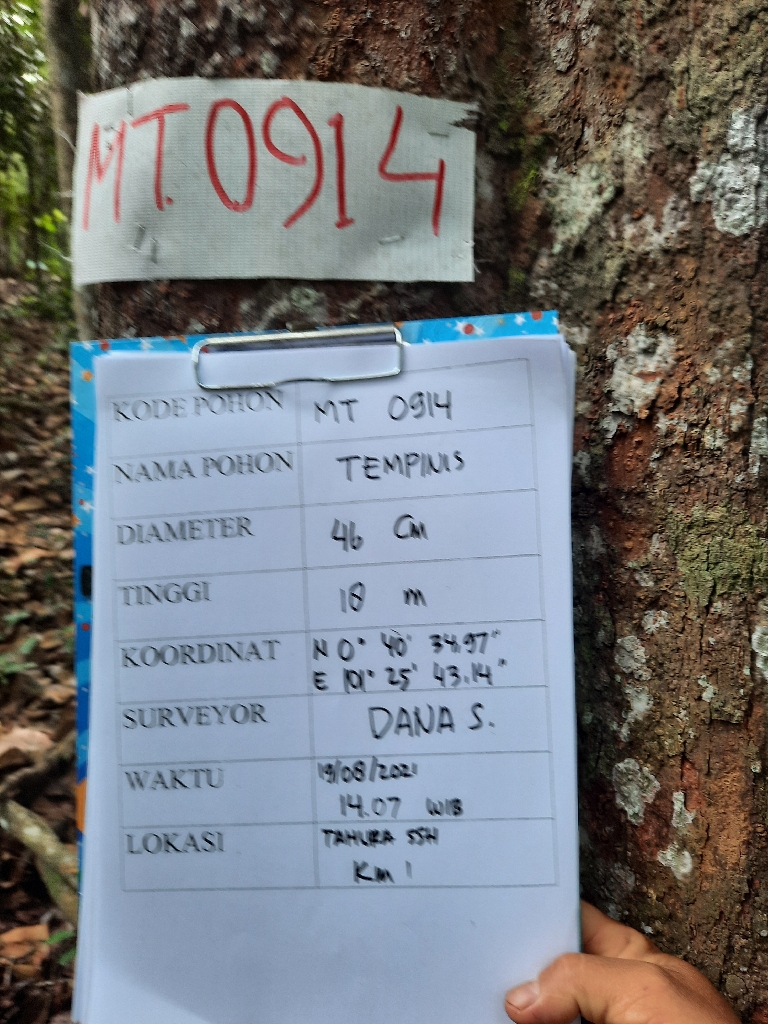 MT. 0914
KODE POHON MT 0914
NAMA POHON TEMPINIS
DIAMETER 46 Cm
TINGGI 18 m
KOORDINAT N 0° 40' 34.97"
E 101° 25' 43.14"
SURVEYOR DANA S.
WAKTU 19/08/2021
14.07 WIB
LOKASI TAHURA SSH
Km 1